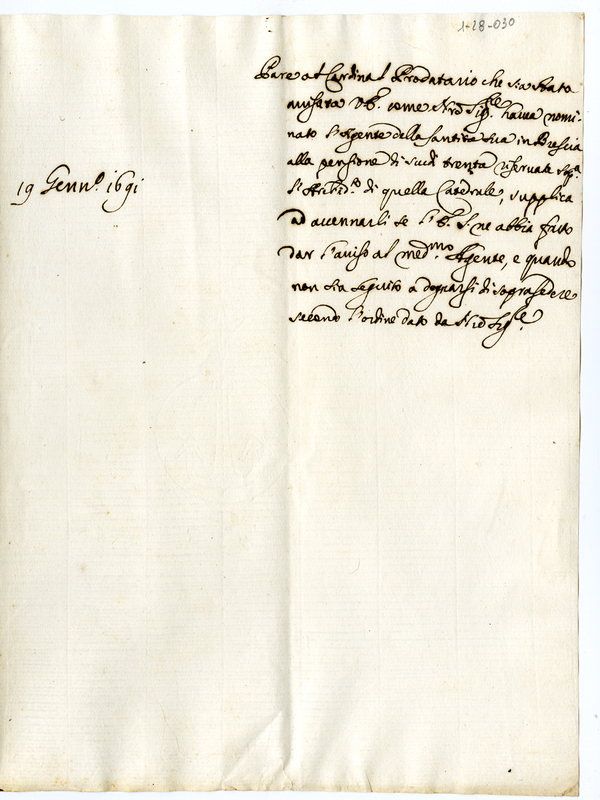 1-28-030
Pare al Cardinal Prodatario che sia stata
avisata V.E. come Nrõ Sigre. havea nomi-
nato l'Agente della Santità Sua in Brescia
alla pensione di scudi trenta riservata
l'Archid.to di quella Catedrale, supplica
ad accennarli se V.E. ne abbia fatto
dar l'aviso al med.mo Agente, e quando
non sia seguito a degnarsi di soprasedere
secondo l'ordine dato da Nrõ Sigre.
19 Genn.o 1691